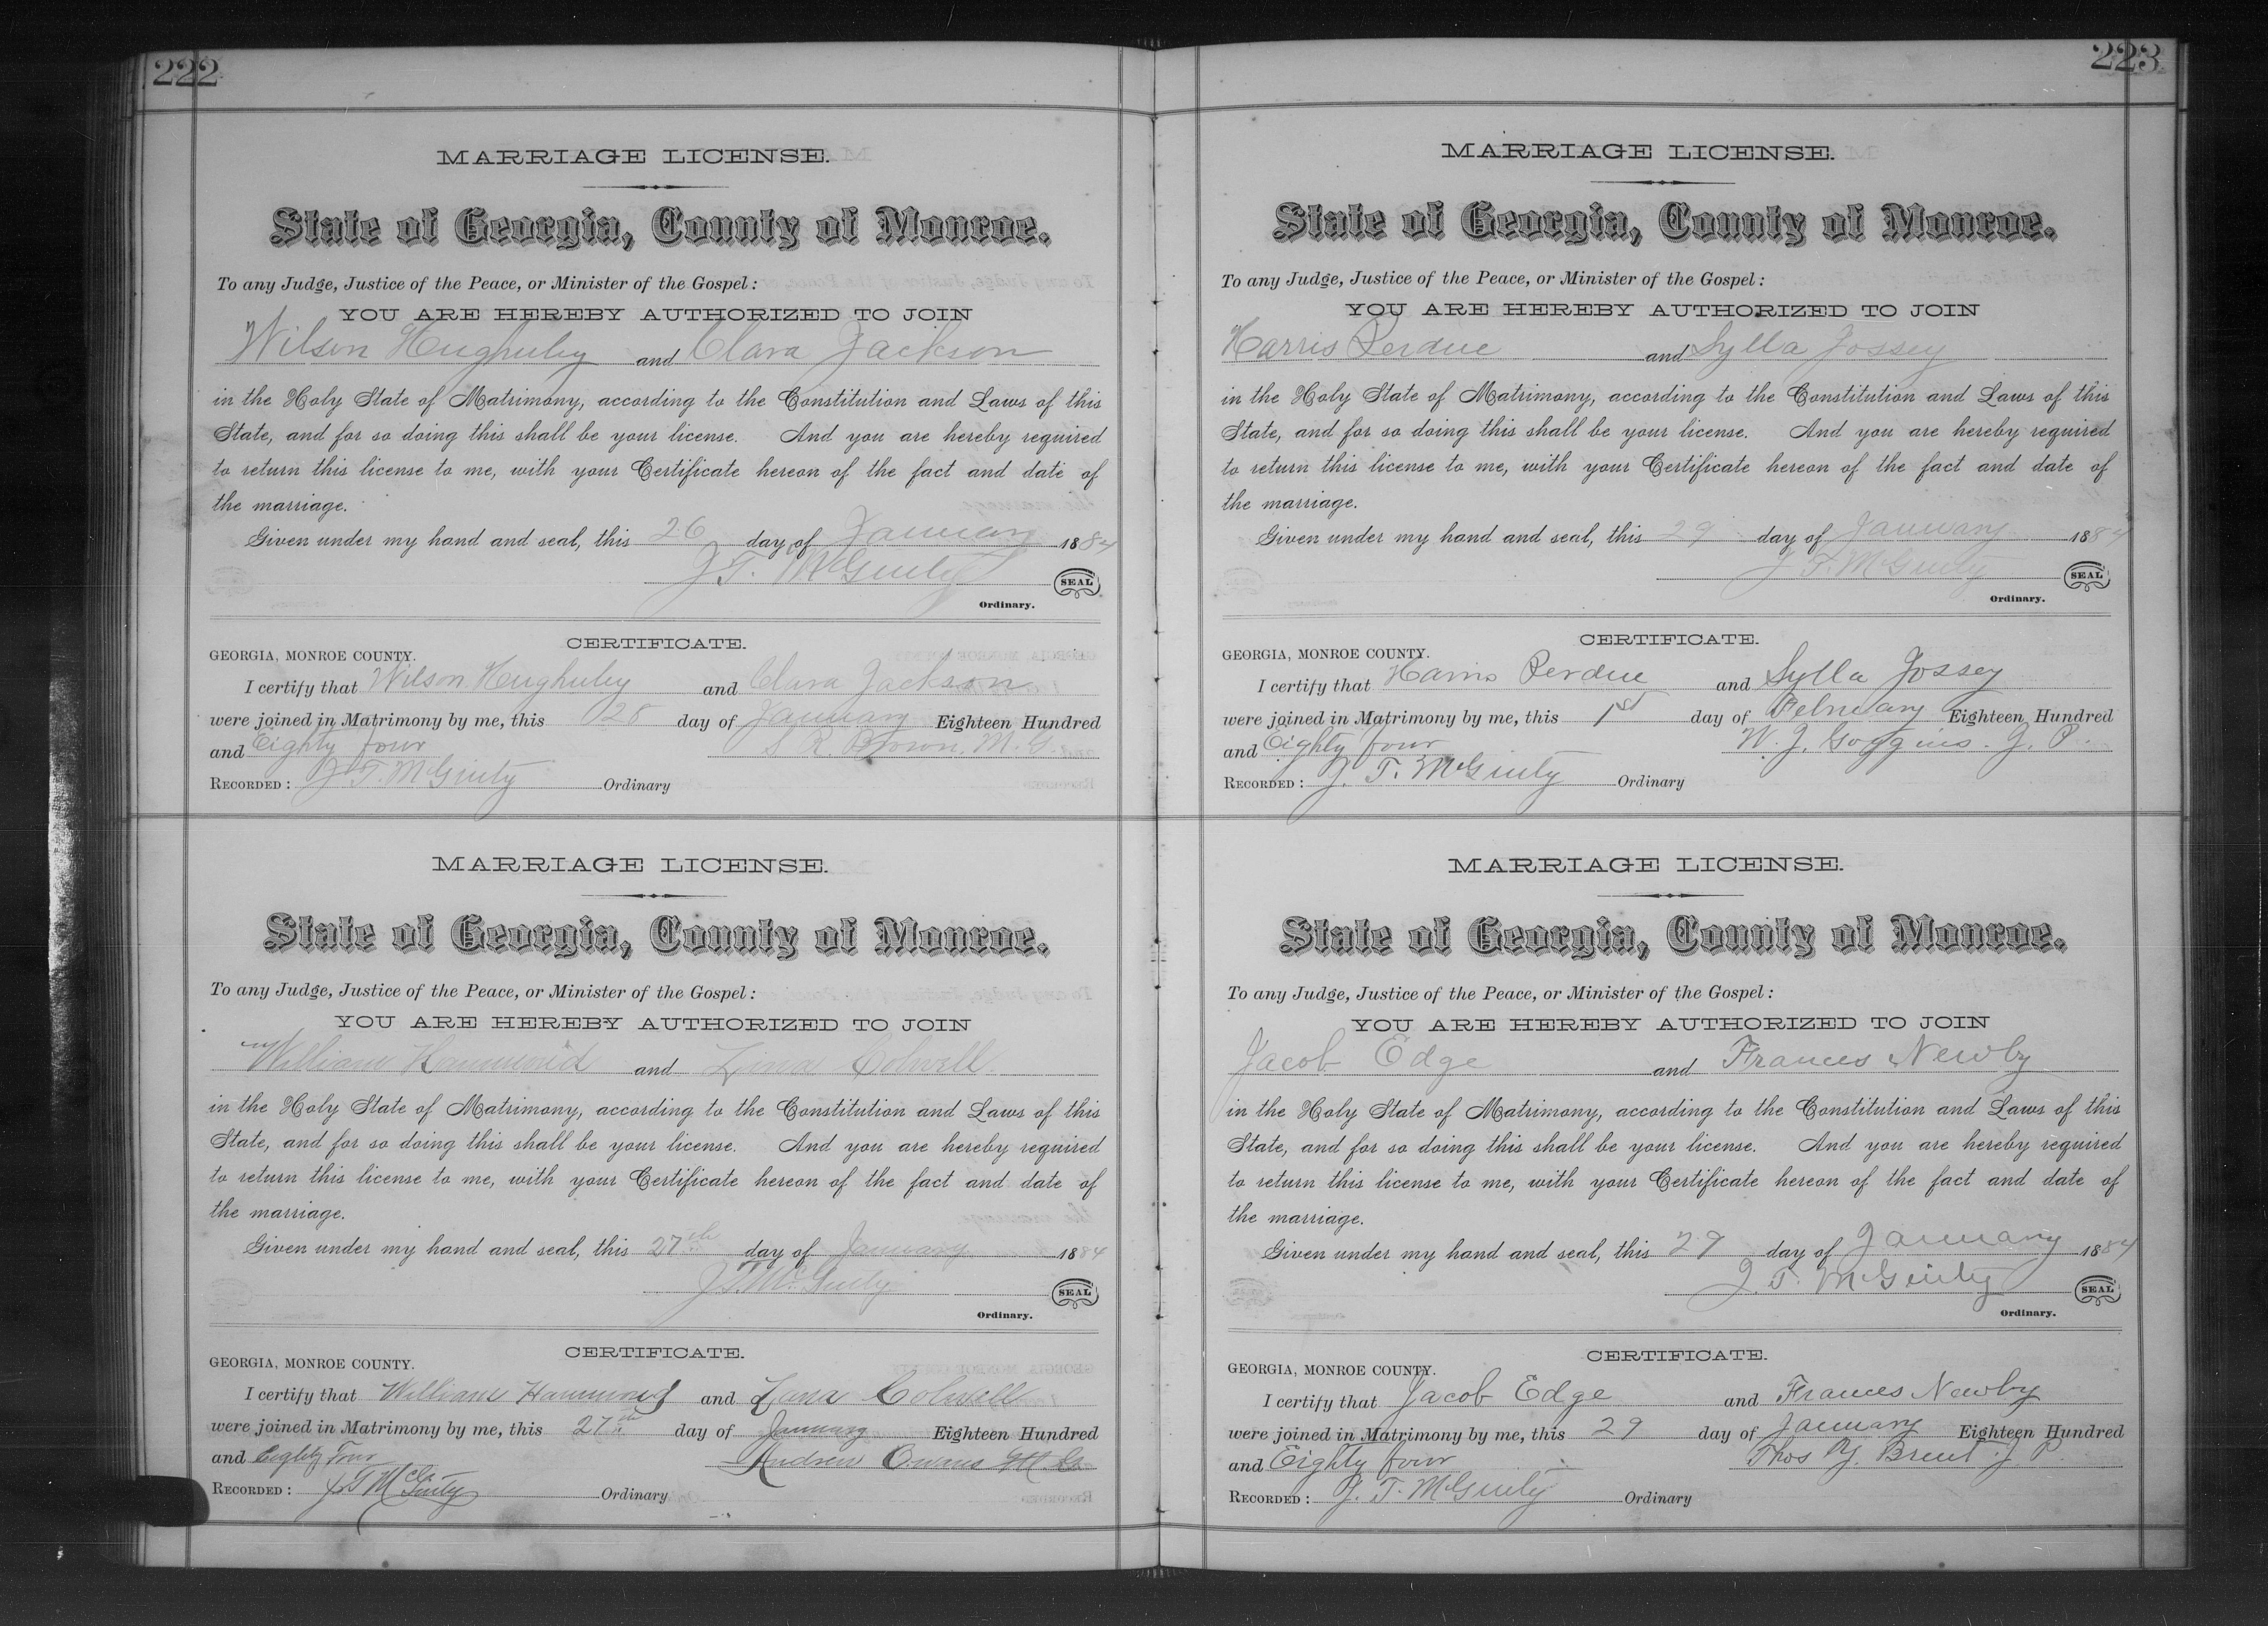 222
MARRIAGE LICENSE.
State of Georgia, County of Monroe.
To any Judge, Justice of the Peace, or Minister of the Gospel:
YOU ARE HEREBY AUTHORIZED TO JOIN
Wilson Hughuley and Clara Jackson
in the Holy State of Matrimony, according to the Constitution and Laws of this
State, and for so doing this shall be your license. And you are hereby required
to return this license to me, with your Certificate hereon of the fact and date of
the marriage.
Given under my hand and seal, this 26 day of January 1884
J. T. McGinty SEAL
Ordinary.
CERTIFICATE.
GEORGIA, MONROE COUNTY.
I certify that Wilson Hughuley and Clara Jackson
were joined in Matrimony by me, this 28 day of January Eighteen Hundred
and Eighty four S. R. Brown. M. G.
RECORDED: J. T. McGinty Ordinary
MARRIAGE LICENSE.
State of Georgia, County of Monroe.
To any Judge, Justice of the Peace, or Minister of the Gospel:
YOU ARE HEREBY AUTHORIZED TO JOIN
William Hammond and Lina Colwell
in the Holy State of Matrimony, according to the Constitution and Laws of this
State, and for so doing this shall be your license. And you are hereby required
to return this license to me, with your Certificate hereon of the fact and date of
the marriage.
Given under my hand and seal, this 27th day of January 1884
J. T. McGinty SEAL
Ordinary.
CERTIFICATE.
GEORGIA, MONROE COUNTY.
I certify that William Hammond and Lana Colwell
were joined in Matrimony by me, this 27th day of January Eighteen Hundred
and Eighty Four Andrew Owens
RECORDED: J T McGinty Ordinary
223
MARRIAGE LICENSE.
State of Georgia, County of Monroe.
To any Judge, Justice of the Peace, or Minister of the Gospel:
YOU ARE HEREBY AUTHORIZED TO JOIN
Harris Perdue and Sylla Jossey
in the Holy State of Matrimony, according to the Constitution and Laws of this
State, and for so doing this shall be your license. And you are hereby required
to return this license to me, with your Certificate hereon of the fact and date of
the marriage.
Given under my hand and seal, this 29 day of January 1884
J. T. McGinty SEAL
Ordinary.
CERTIFICATE.
GEORGIA, MONROE COUNTY.
I certify that Harris Perdue and Sylla Jossey
were joined in Matrimony by me, this 1st day of February Eighteen Hundred
and Eighty four W. J. Goggins. J. P.
RECORDED: J. T. McGinty Ordinary
MARRIAGE LICENSE.
State of Georgia, County of Monroe.
To any Judge, Justice of the Peace, or Minister of the Gospel:
YOU ARE HEREBY AUTHORIZED TO JOIN
Jacob Edge and Frances Newby
in the Holy State of Matrimony, according to the Constitution and Laws of this
State, and for so doing this shall be your license. And you are hereby required
to return this license to me, with your Certificate hereon of the fact and date of
the marriage.
Given under my hand and seal, this 29 day of January 1884
J. T. McGinty SEAL
Ordinary.
CERTIFICATE.
GEORGIA, MONROE COUNTY.
I certify that Jacob Edge and Frances Newby
were joined in Matrimony by me, this 29 day of January Eighteen Hundred
and Eighty four Thos Y. Brent J P.
RECORDED: J. T. McGinty Ordinary